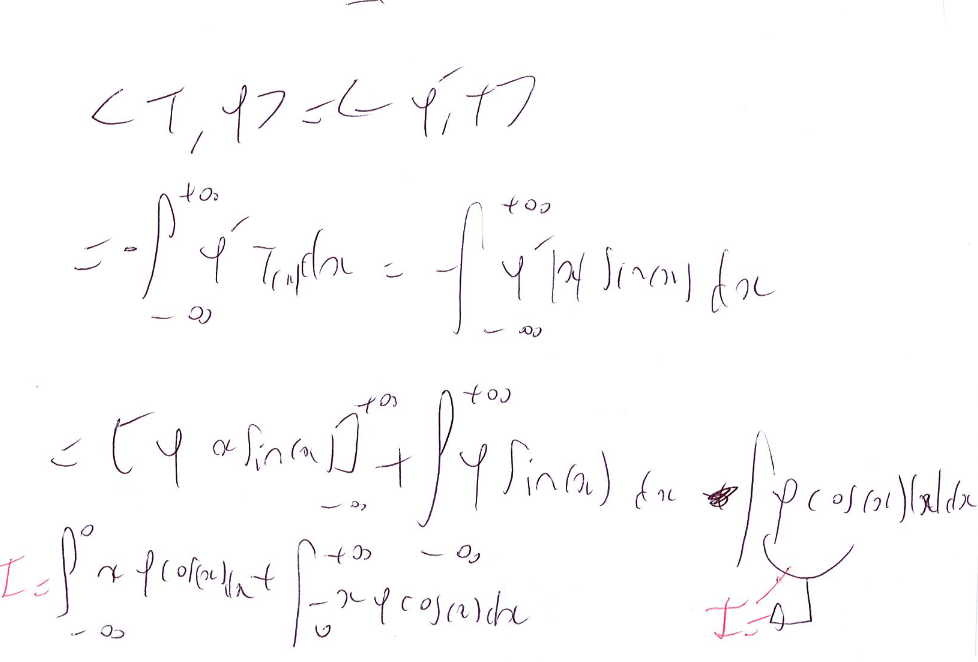 <T, φ> = <-φ', T>
= -∫_{-∞}^{+∞} φ' T(x) dx = -∫_{-∞}^{+∞} φ' |x| sin(x) dx
= [φ x sin(x)]_{-∞}^{+∞} + ∫_{-∞}^{+∞} φ sin(x) dx ∫ φ cos(x) |x| dx
I = ∫_{-∞}^{0} x φ cos(x) dx + ∫_{0}^{+∞} -x φ cos(x) dx
I =